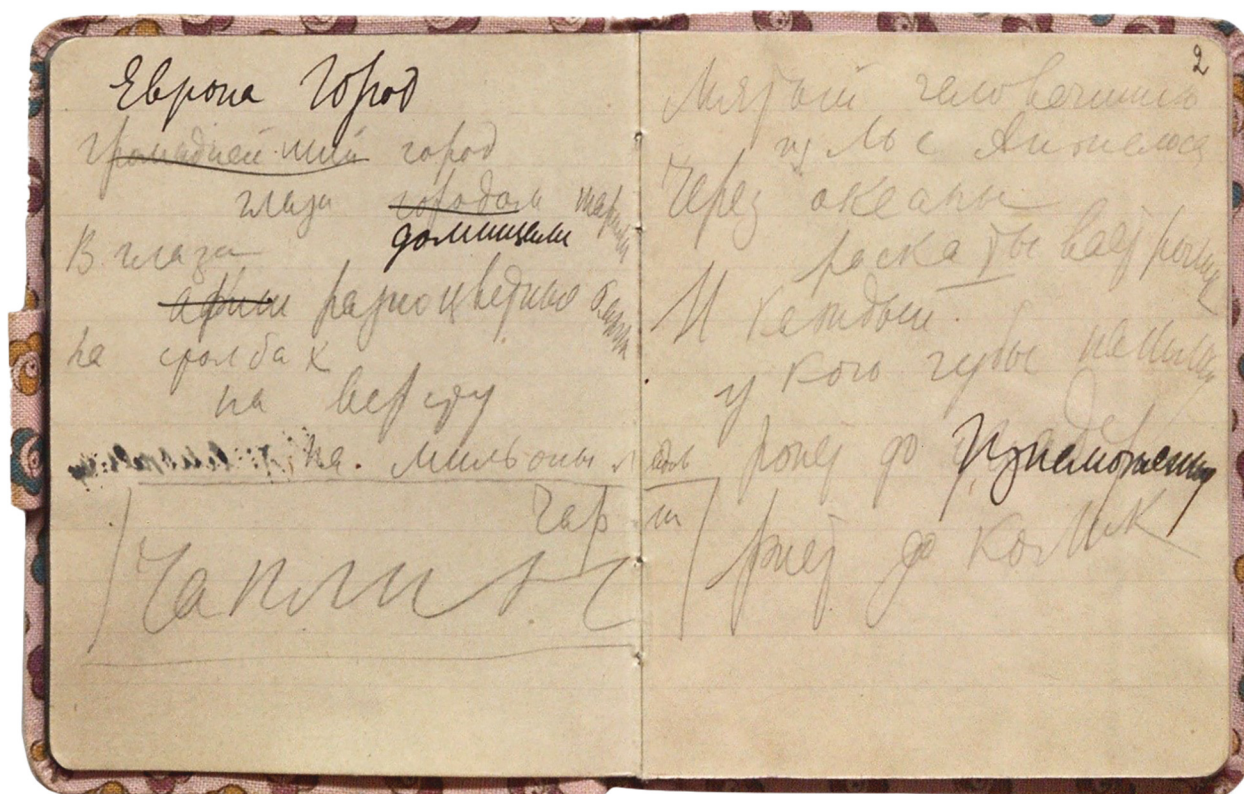 Европа Город
Громаднейший город
глаза городом
домищами
В глаза
афиш разноцветные
на столбах
на версту
на мильоны ладов
Чарли
Чаплин
2
Мятый человечишко
из Лос Анжелоса
Через океаны
раскатывает
И каждый
у кого губы
ржет до изнеможения
ржет до колик